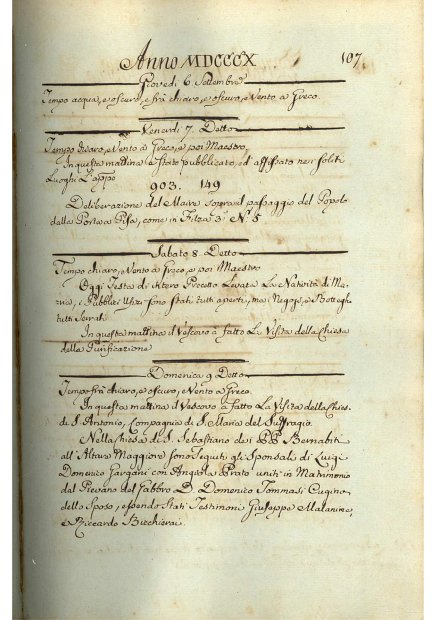 Anno MDCCCX 107.
Giovedi 6 Settembre
Tempo acqua, e oscuro, e frà chiaro, e oscuro, e Vento a Greco.
Venerdi 7. Detto
Tempo chiaro, e Vento a Greco, e poi Maestro,
In questa mattina è stato pubblicato, ed affissato nei soliti
Luoghi L'appo
903. 149
Deliberazione del Maire sopra il passaggio del Popolo
dalla Porta a Pisa, come in Filza 3ª Nº 5
Sabato 8 Detto
Tempo chiaro, e Vento a Greco, e poi Maestro
Oggi Festa di intero Precetto Levata La Natività di Ma-
ria, i Pubblici Uffizi sono stati tutti aperti, ma i Negozj, e Botteghe
tutti Serrati
In questa mattina il Vescovo à fatto La Visita della Chiesa
della Purificazione
Domenica 9 Detto
Tempo frà chiaro, e oscuro, e Vento a Greco.
In questa mattina il Vescovo à fatto La Visita della Chiesa
di S. Antonio, Compagnia di S. Maria del Suffragio.
Nella Chiesa di S. Sebastiano de PP Bernabiti
all'Altare Maggiore sono Seguiti gli Sponsali di Luigi
Domenico Gargani con Angiola Prato uniti in Matrimonio
dal Pievano del Gabbro D. Domenico Tommasi Cugino
dello Sposo, essendo Stati Testimoni Giuseppe Malanima,
e Riccardo Bicchierai